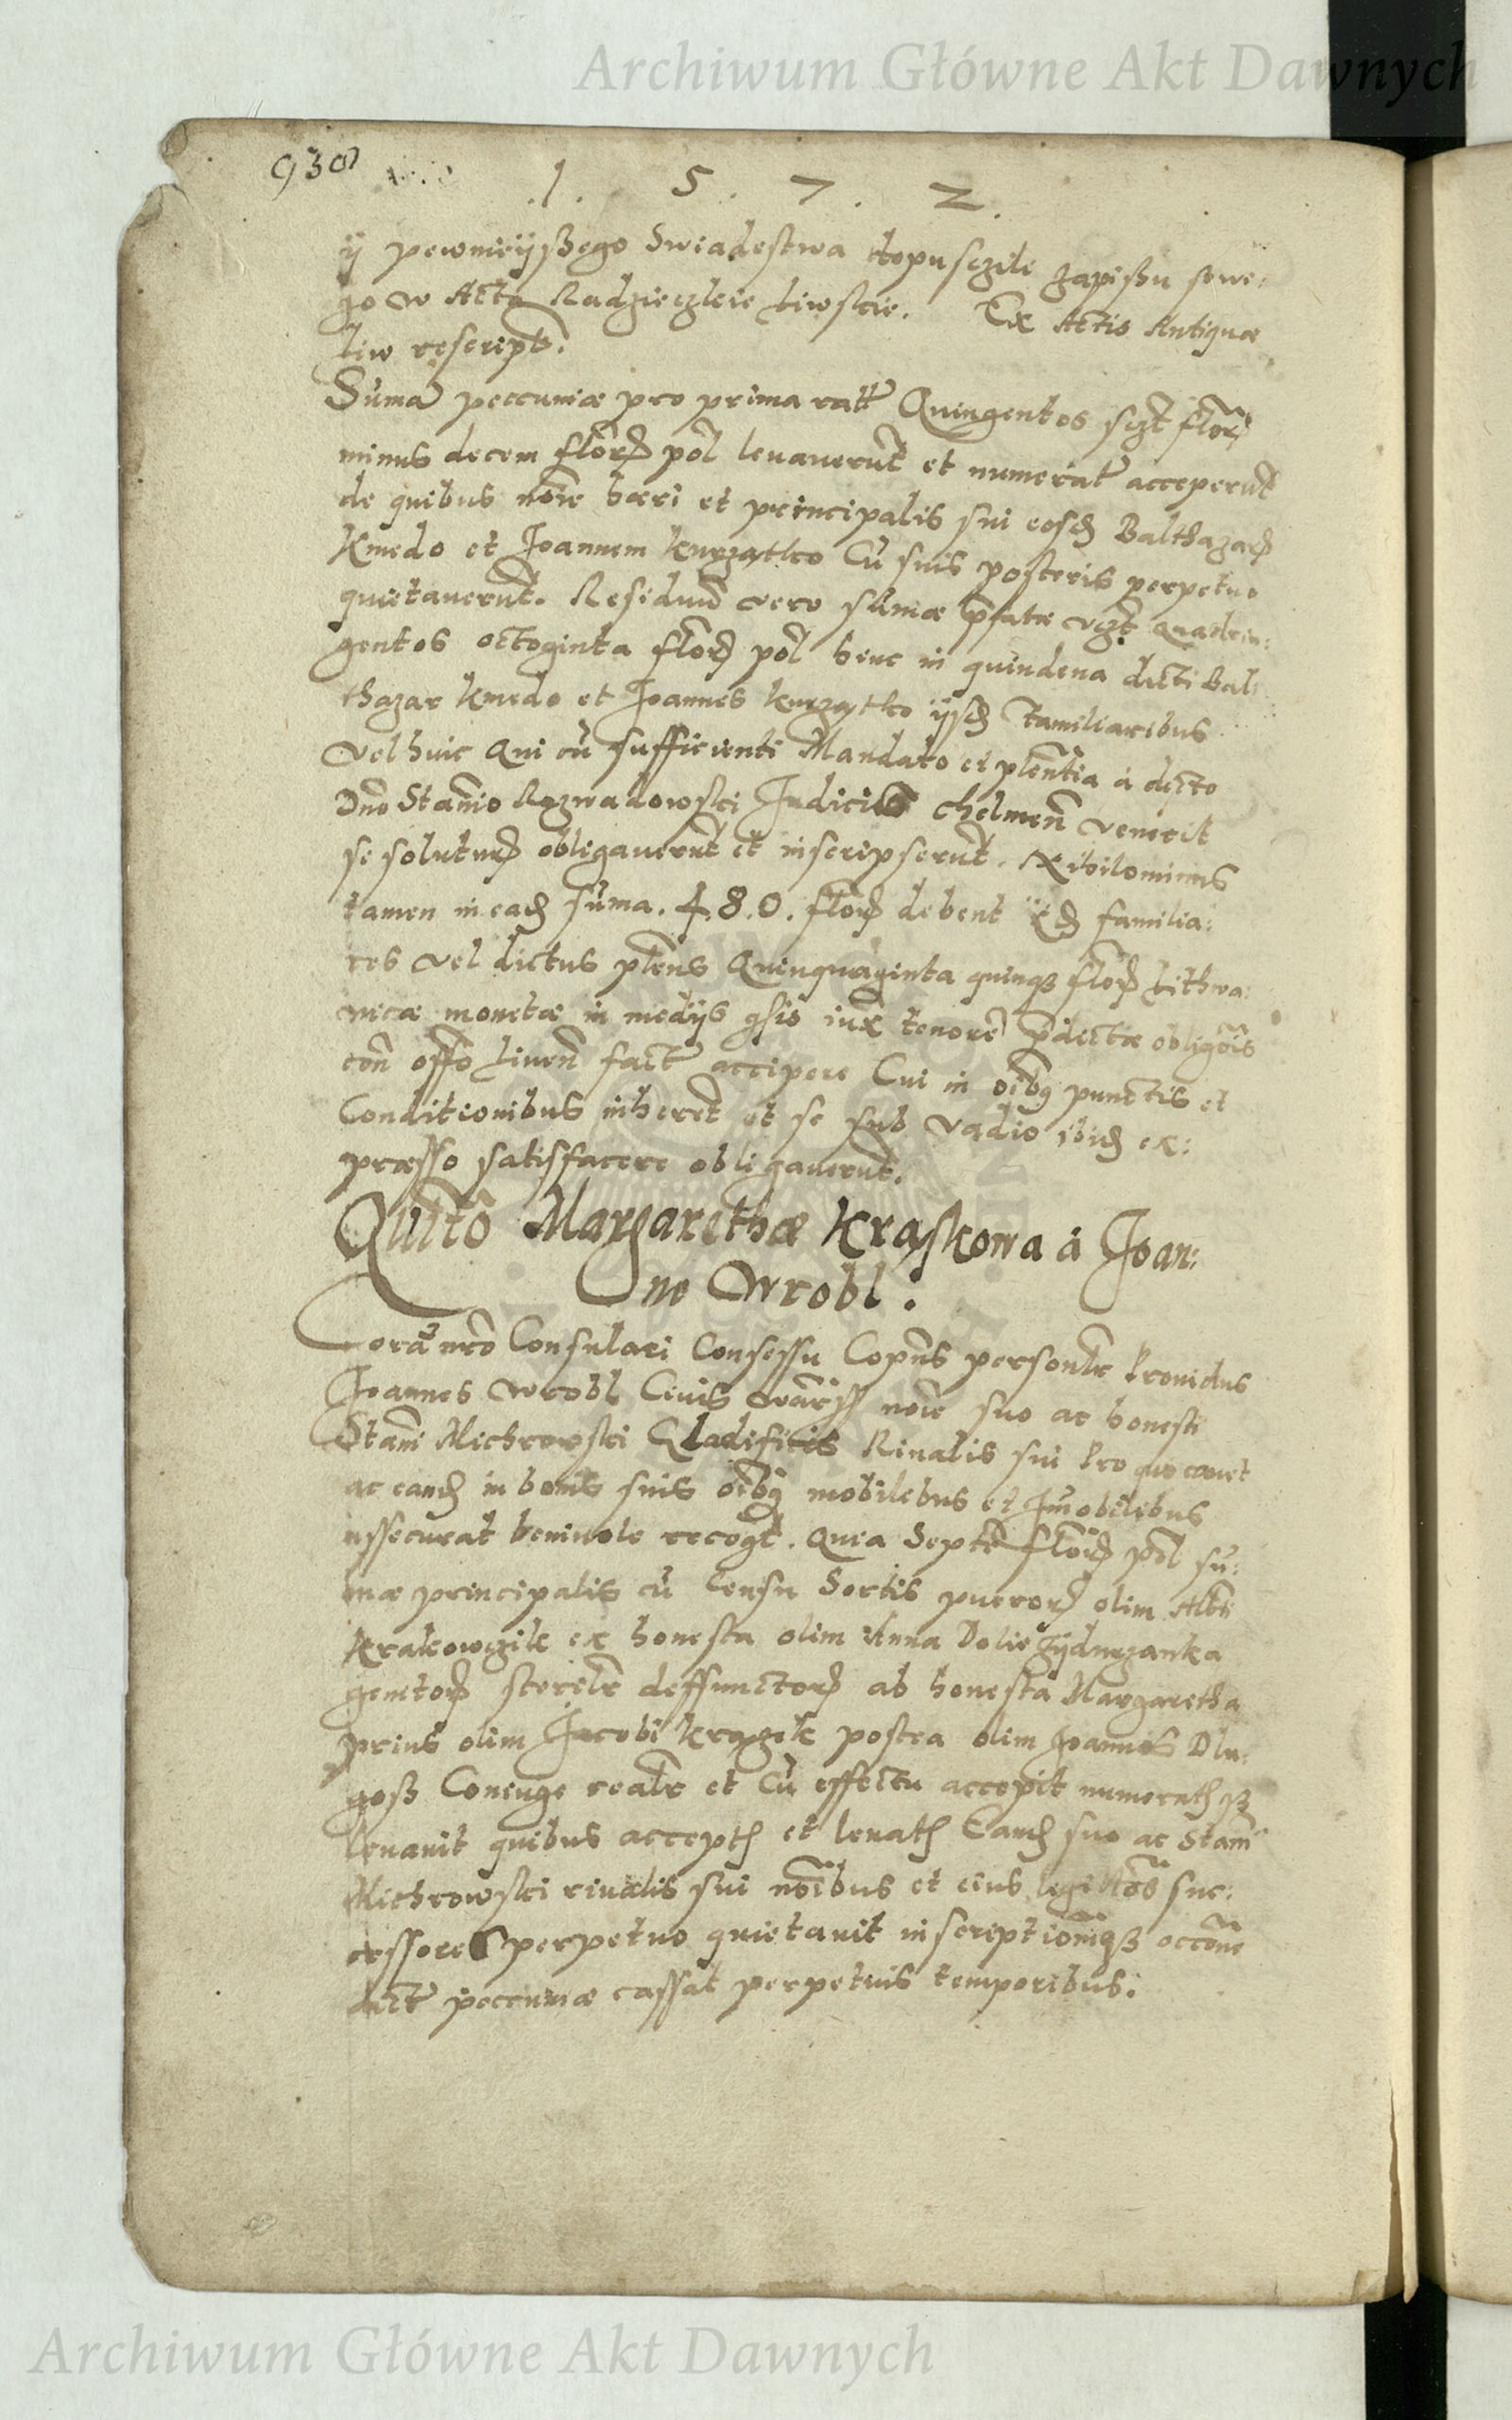 Archiwum Główne Akt Dawnych
930
.1. 5. 7. 2.
ÿ pewnieÿßego Swiadestwa dopusczile zapißu swe:
go w Acta Radzieczkie Liwskie. Ex Actis Antiquæ
Liw rescript.
Suma peccuniæ pro prima ratt Quingentos scżt florꝝ
minus decem florꝝ pol levaverūt et numerat acceperūt
de quibus noīe hæri et principalis sui eosđ Balthazarꝝ
Kmedo et Joannem Kurzątko Cū suis posteris perpetuo
quietaverūt. Residuū vero sūmæ p̄fatæ vczt Quadrin:
gentos octoginta florꝝ pol hinc in quindena dicti Bal:
thazar Kmedo et Joannes Kurzątko ijsđ familiaribus
vel huic Qui cū sufficienti Mandato et pleñtia à dicto
Dno Stanio Rozwadowski Judicis Chelmeñ venerit
se soluturꝝ obligaverūt et inscripserūt. Nihilominus
tamen in eađ sūma. 4.8.0. florꝝ debent ijđ familia:
res vel dictus pleñs Quinquaginta quinqꝫ florꝝ Lithwa:
nicæ monetæ in medijs gsis iux tenorē p̄dictæ obligoīs
corā offo Liveñ fact accipere Cui in oībꝫ punctis et
Conditionibus inheret et se sub vadio ibiđ ex:
præsso satisfacere obligaverūt.
Quitō Margarethæ Kraskowa à Joan:
ne Wrobl.
Corā nrō Consulari Consessu Cop̄ns persoñlr Providus
Joannes Wrobl Civis Wars noīe suo ac honesti
Stani Michrowski Gladificis Rivalis sui Pro quo cavet
ac eanđ in bonis suis oībꝫ mobilibus et Imobilibus
assecurat benivole recogt. Quia Septē florꝝ pol sū:
mæ principalis cū Censu Sortis puerorꝝ olim Albti
Krakowczik ex honesta olim Anna Dolie
genitorꝝ sterilr deffunctorꝝ ab honesta Margaretha
prius olim Jacobi Krązik postea olim Joannis Dlu:
goß Coniuge realr et Cū effectu accepit numeratqꝫ
levavit quibus accepts et levats Eanđ suo ac Stani
Michrowski rivalis sui noībus et eius legittos suc:
cessores perpetuo quietavit inscriptionēqꝫ occōne
dict peccuniæ cassat perpetuis temporibus.
Archiwum Główne Akt Dawnych